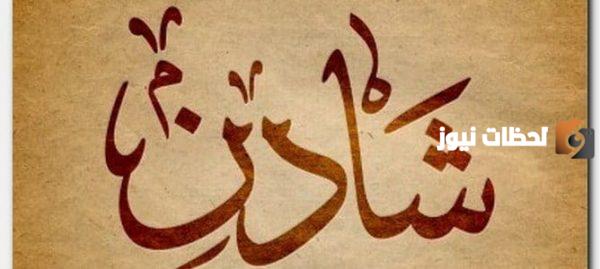 شادن
لحظات نيوز